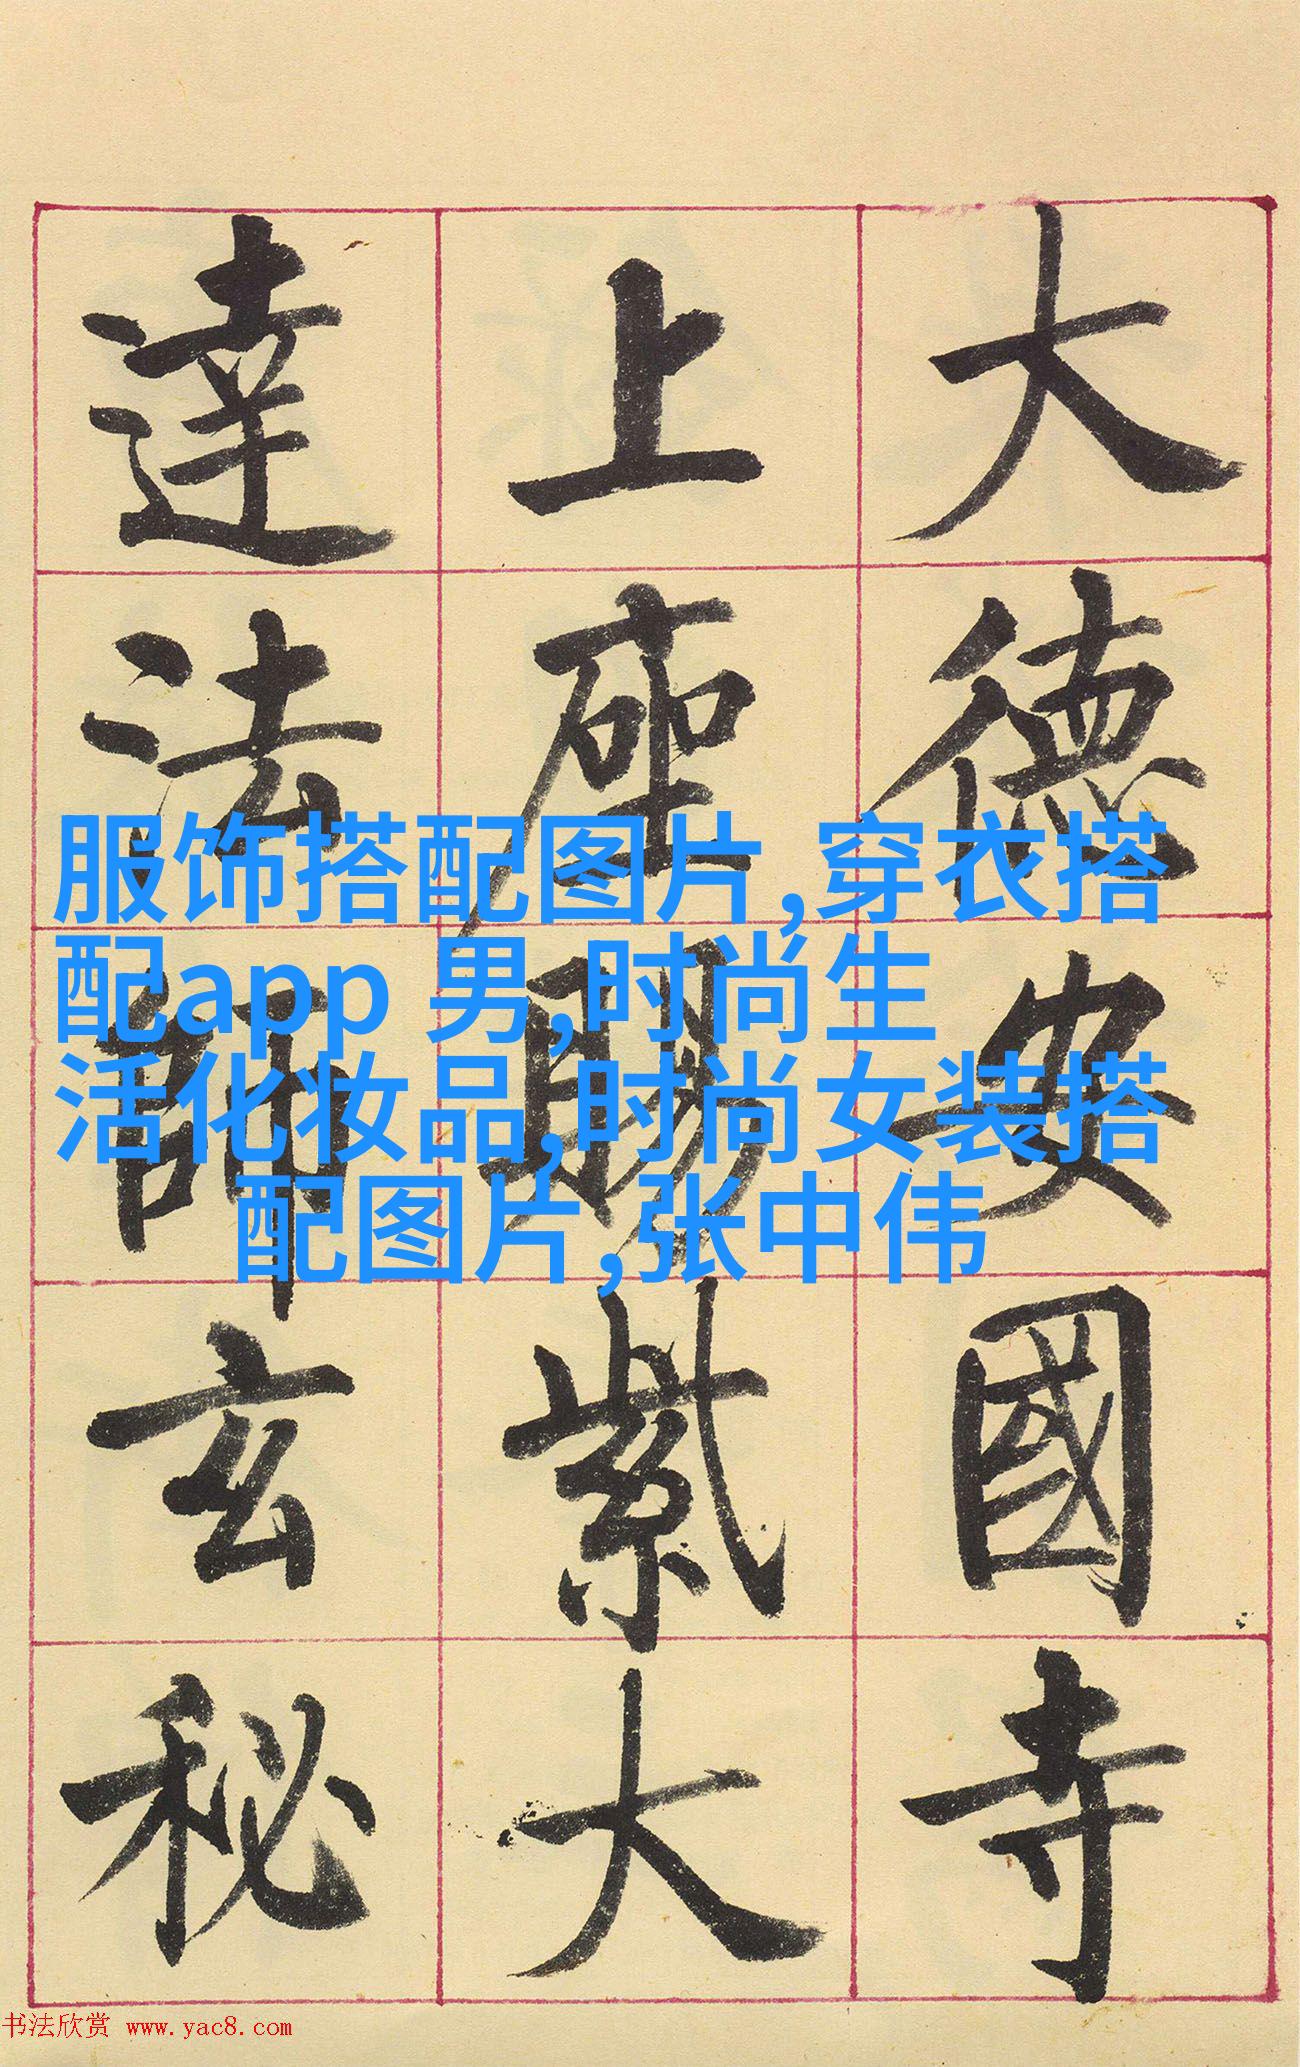 大德安國寺
上座賜紫大
達法師玄秘
服饰搭配图片,穿衣搭
配app 男,时尚生
活化妆品,时尚女装搭
配图片,张中伟
书法欣赏 www.yac8.com